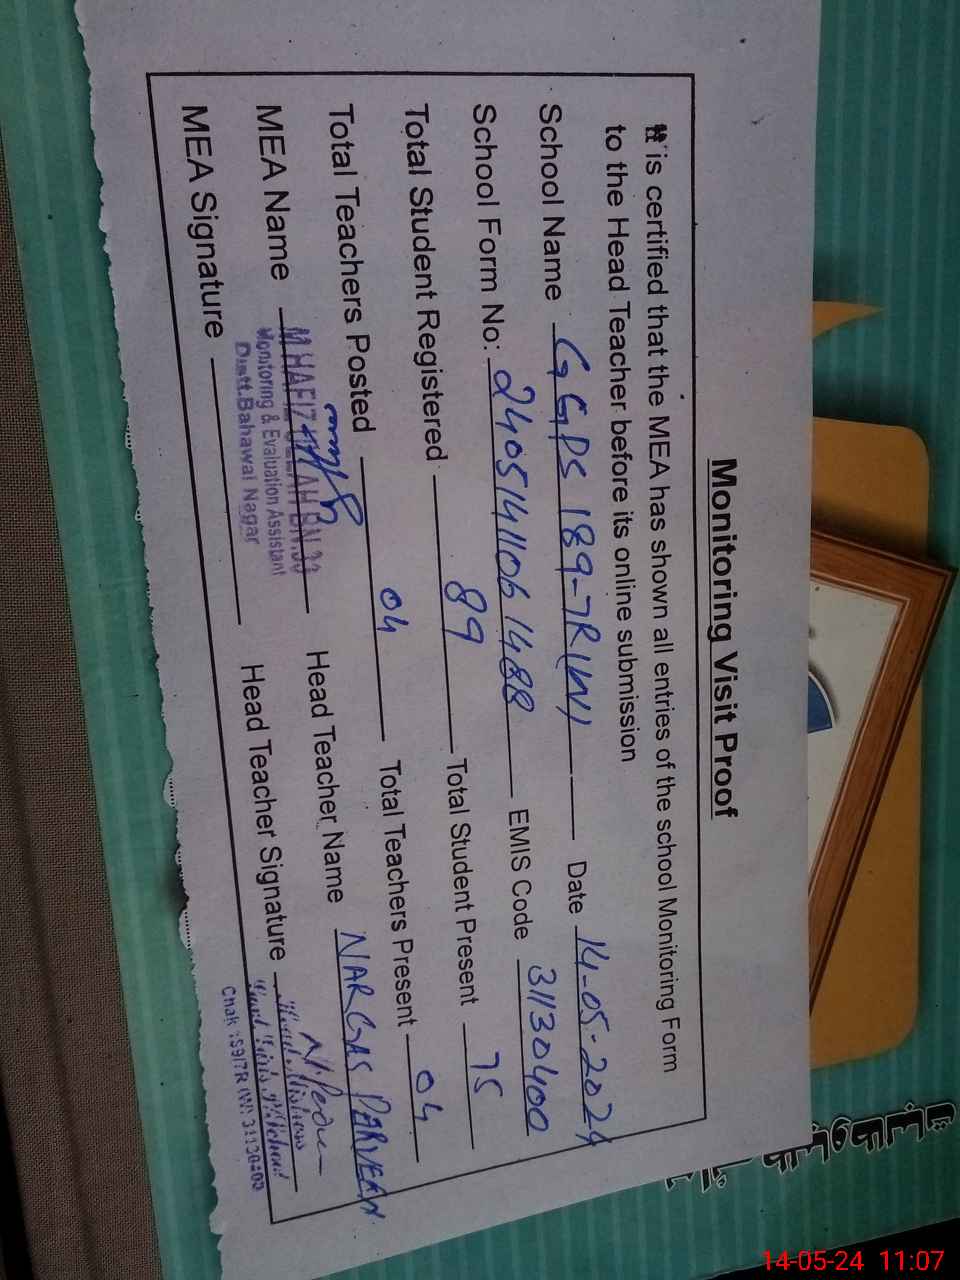 Monitoring Visit Proof
It is certified that the MEA has shown all entries of the school Monitoring Form
to the Head Teacher before its online submission
School Name GGPS 189-7R(W) Date 14-05-2024
School Form No: 24051411061488 EMIS Code 31130400
Total Student Registered 89 Total Student Present 75
Total Teachers Posted 04 Total Teachers Present 04
MEA Name M HAFIZ BN.33 Head Teacher Name NARGAS PARVEEN
Monitoring & Evaluation Assistant
Distt.Bahawal Nagar
MEA Signature Head Teacher Signature
Head Mistress
Chak 189/7R (W) 31130400
14-05-24 11:07